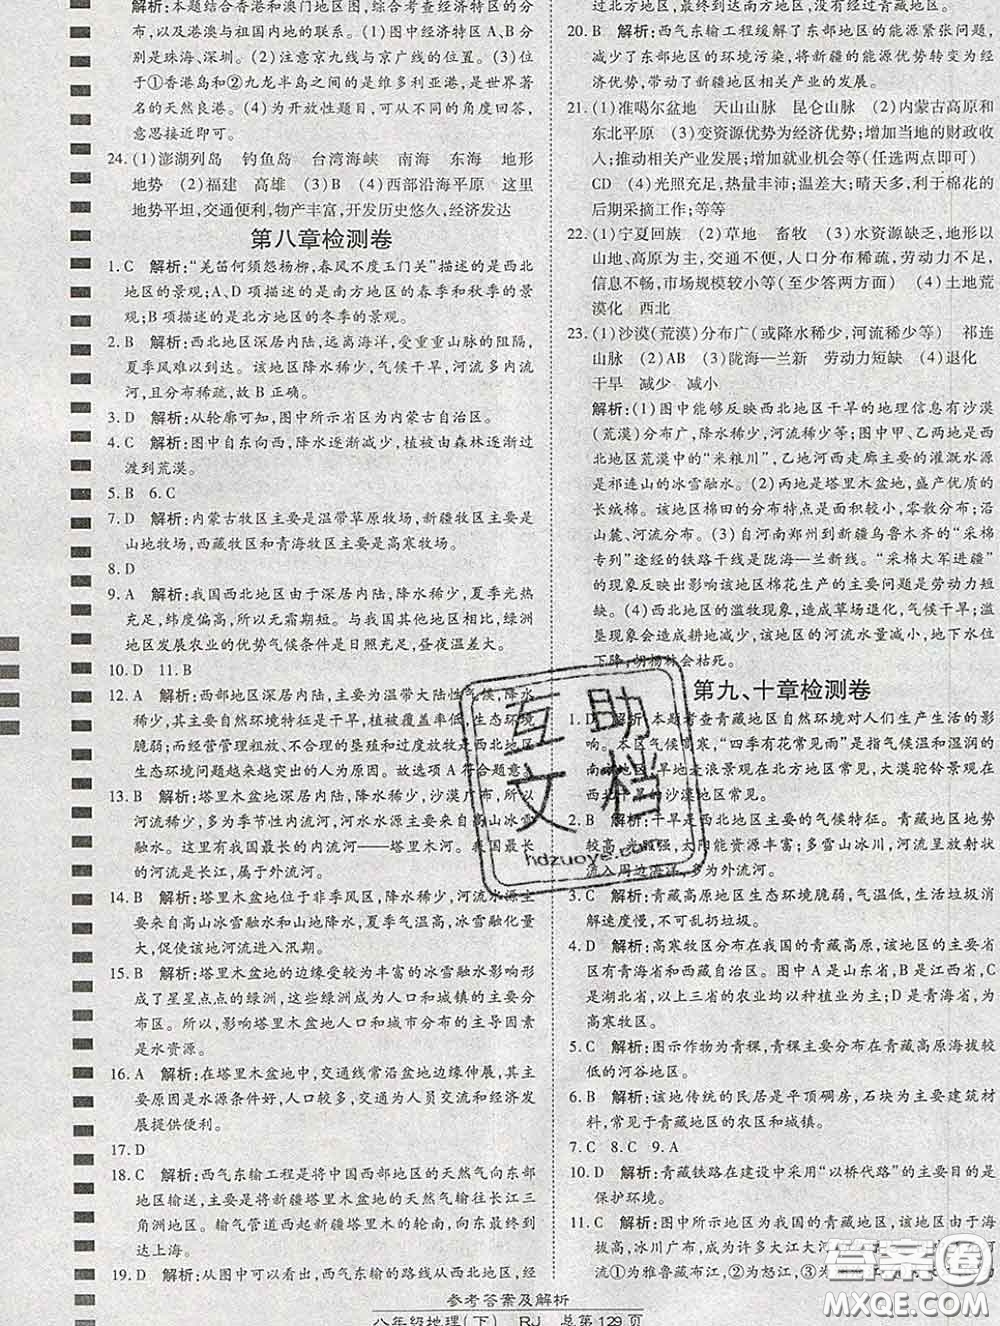 解析:本题结合香港和澳门地区图,综合考查经济特区的分
布,以及港澳与祖国内地的联系。(1)图中经济特区A、B分
别是珠海、深圳。(2)注意京九线与京广线的位置。(3)
位于①香港岛和②九龙半岛之间的是维多利亚港,是世界著
名的天然良港。(4)为开放性题目,可从不同的角度回答,
意思接近即可。
24. (1)澎湖列岛 钓鱼岛 台湾海峡 南海 东海 地形
地势 (2)福建 高雄 (3)B (4)西部沿海平原 这里
地势平坦,交通便利,物产丰富,开发历史悠久,经济发达
第八章检测卷
1. C 解析:“羌笛何须怨杨柳,春风不度玉门关”描述的是西北
地区的景观;A、D项描述的是南方地区的春季和秋季的景
观;B项描述的是北方地区的冬季的景观。
2. B 解析:西北地区深居内陆,远离海洋,受重重山脉的阻隔,
夏季风难以到达。该地区降水稀少,气候干旱,河流多内流
河,且分布稀疏,故B正确。
3. D 解析:从轮廓可知,图中所示省区为内蒙古自治区。
4. C 解析:图中自东向西,降水逐渐减少,植被由森林逐渐过
渡到荒漠。
5. B 6. C
7. D 解析:内蒙古牧区主要是温带草原牧场,新疆牧区主要是
山地牧场,西藏牧区和青海牧区主要是高寒牧场。
8. D
9. A 解析:我国西北地区由于深居内陆,降水稀少,夏季光热
充足,纬度偏高,所以无霜期短。与我国其他地区相比,绿洲
地区发展农业的优势气候条件是日照充足,昼夜温差大。
10. D 11. B
12. A 解析:西部地区深居内陆,主要为温带大陆性气候,降水
稀少,其主要自然环境特征是干旱,植被覆盖率低,生态环境
脆弱;而经营管理粗放、不合理的垦殖和过度放牧又使西部
生态环境问题越来越突出的主要原因。故选项A符合题意。
13. B 解析:塔里木盆地深居内陆,降水稀少,沙漠广布。所以,
多为季节性内流河,河水水源主要是高山冰雪融水。
这里有我国最长的内流河——塔里木河。我国最长
的河流是长江,属于外流河。
14. B 解析:塔里木盆地位于非季风区,降水稀少,河水主要
来自高山冰雪融水和山地降水,夏季气温高,冰雪融化量
大,促使该地河流进入汛期。
15. B 解析:塔里木盆地的边缘受较为丰富的冰雪融水影响形
成了星星点点的绿洲,这些绿洲成为人口和城镇的主要分
布区。所以,影响塔里木盆地人口和城市分布的主导因素
是水资源。
16. A 解析:在塔里木盆地中,交通线常沿盆地边缘伸展,其主
要原因是水源条件好,人口较多,交通为人员交流和经济发
展提供便利。
17. D
18. C 解析:西气东输工程是将中国西部地区的天然气向东部
地区输送,主要是将新疆塔里木盆地的天然气输往长江三
角洲地区。输气管道西起新疆塔里木的轮南,向东最终到
达上海。
19. D 解析:从图中可以看出,西气东输的路线从西北地区,经
过北方地区,最后到达南方地区,没有经过青藏地区。
20. B 解析:西气东输工程缓解了东部地区的能源紧张问题,
减少了东部地区的环境污染,将新疆的能源优势转变为经
济优势,带动了新疆地区相关产业的发展。
21. (1)准噶尔盆地 天山山脉 昆仑山脉 (2)内蒙古高原和
东北平原 (3)变资源优势为经济优势;增加当地的财政收
入;推动相关产业发展;增加就业机会等(任选两点即可)
CD (4)光照充足,热量丰沛;温差大;晴天多,利于棉花的
后期采摘工作;等等
22. (1)宁夏回族 (2)草地 畜牧 (3)水资源缺乏,地形以
山地、高原为主,交通不便,人口分布稀疏,经济落后,
信息不畅,市场规模较小等(至少答两方面) (4)土地荒
漠化 西北
23. (1)沙漠(荒漠)分布广(或降水稀少,河流稀少等) 祁连
山脉 (2)AB (3)陇海—兰新 劳动力短缺 (4)退化
干旱 减少 减小
解析:(1)图中能够反映西北地区干旱的地理信息有沙漠
(荒漠)分布广,降水稀少,河流稀少等。图中甲、乙两地是西
北地区荒漠中的“米粮川”,乙地河西走廊主要的灌溉水源
是祁连山的冰雪融水。(2)丙地是塔里木盆地,盛产优质的
长绒棉。该地区棉田的分布主要特点是数量多,零散分布;沿
山麓、河流分布。(3)自河南郑州到新疆乌鲁木齐的“采棉
专列”途经的铁路干线是陇海—兰新线。“采棉大军进疆”
的现象反映出影响该地区棉花生产的主要问题是劳动力短
缺。(4)西北地区的滥牧现象,造成草场退化,气候干旱;滥
垦现象会造成耕地减少,该地区的河流水量减小,地下水位
下降,胡杨林会枯死。
第九、十章检测卷
1. D 解析:本题考查青藏地区自然环境对人们生产生活的影
响。本区气候高寒,“四季有花常见雨”是指气候温和湿润的
景观在北方地区常见,大漠驼铃景观在西
2. B
势较高,光照强,太阳能资源丰富;多雪山冰川,众多河
流入周边海洋,多为外流河。
3. C 解析:青藏高原地区生态环境脆弱,气温低,生活垃圾分
解速度慢,不可乱扔垃圾。
4. D 解析:高寒牧区分布在我国的青藏高原,该地区的省区有
青海省和西藏自治区。图中A是山东省,B是江西省,C
是湖北省,以上三省的农业均以种植业为主;D是青海省,为
高寒牧区。
5. C 解析:图示作物为青稞,青稞主要分布在青藏高原海拔较
低的河谷地区。
6. B 解析:该地传统的民居是平顶碉房,石块为主要建筑材
料,常见于青藏地区的农区和城镇。
7. C 8. C 9. A
10. D 解析:青藏铁路在建设中采用“以桥代路”的主要目的是
保护环境。
11. C 解析:图中所示地区为我国的青藏地区,该地区由于海
拔高,冰川广布,成为许多大江大河
流①为雅鲁藏布江,②为怒江,③
参考答案及解析
八年级地理(下) RJ 总第129页
互助文档
hdzuoye.com
答案圈
MXQE.COM